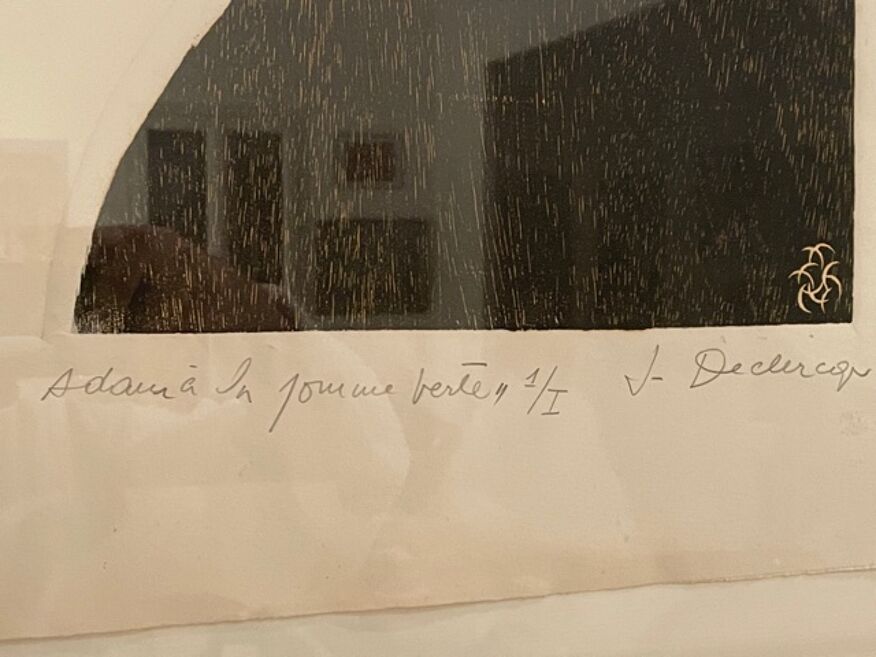 Adam à la pomme verte„ 1/I J- Declercq